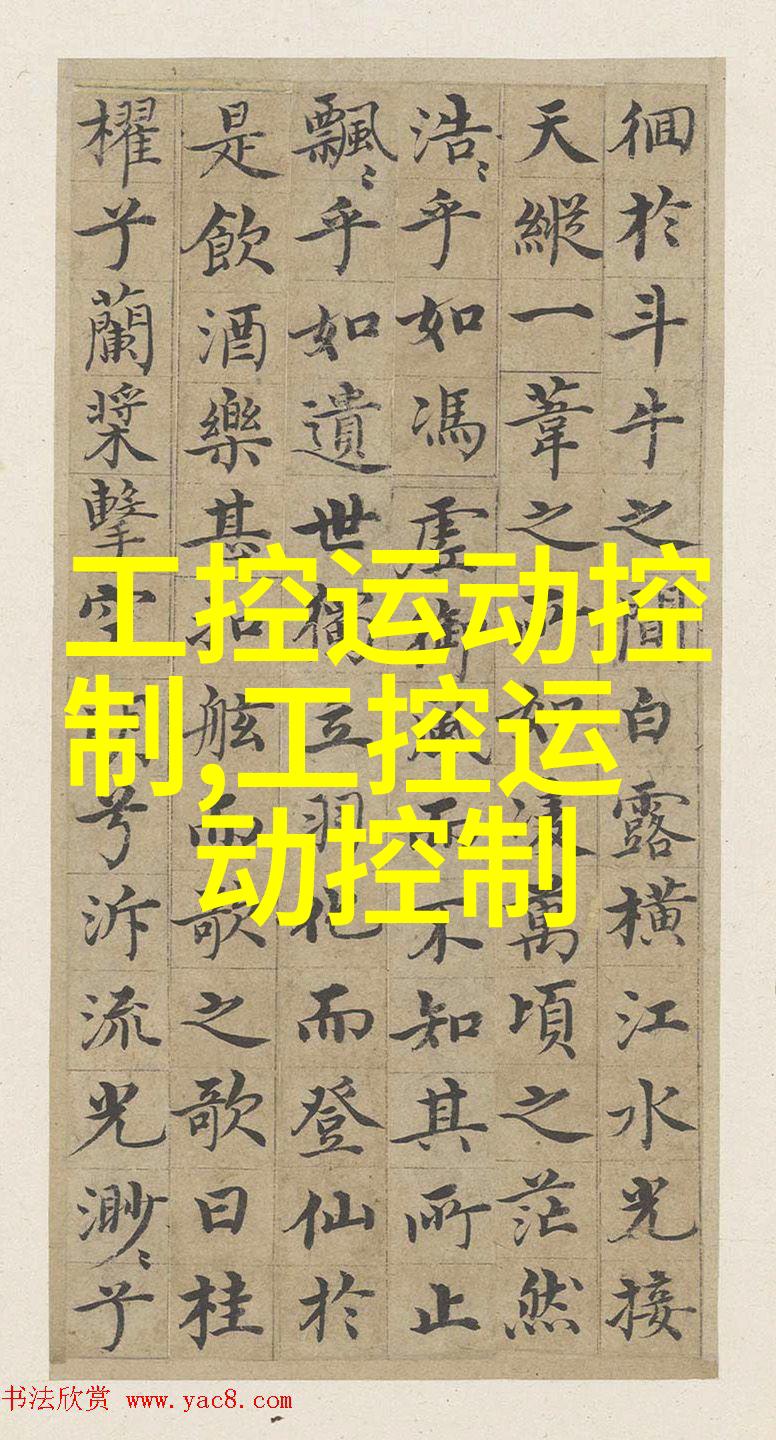 徊於斗牛之間白露橫江水光接
天縱一葦之所如凌萬頃之茫然
浩〻乎如馮虛御風而不知其所止
飄〻乎如遺世獨立羽化而登仙於
是飲酒樂甚扣舷而歌之歌曰桂
櫂兮蘭槳擊空兮泝流光渺〻兮
工控运动控
制,工控运
动控制
书法欣赏 www.yac8.com